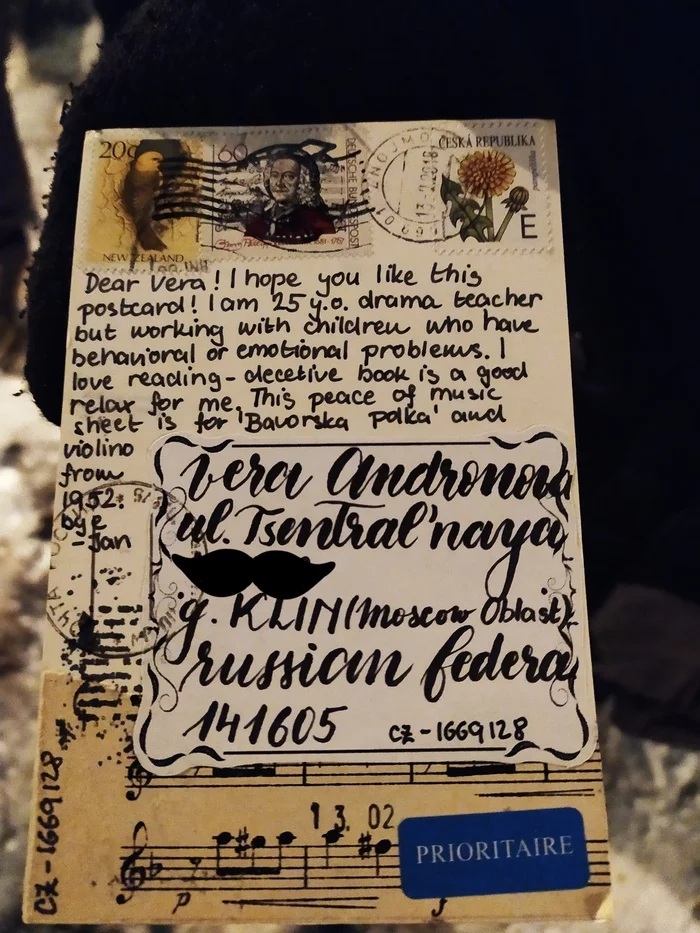 20c
NEW ZEALAND
60
DEUTSCHE BUNDESPOST
1681-1767
ZNOJMO
13.-2.2018
ČESKÁ REPUBLIKA
E
Dear Vera! I hope you like this
postcard! I am 25 y.o. drama teacher
but working with children who have
behavioral or emotional problems. I
love reading - decetive book is a good
relax for me. This peace of music
sheet is for 'Bavorska polka' and
violino
from
1952.
bye
- Jan
Vera Andronova
ul. Tsentral'naya
g. KLIN (Moscow Oblast)
russian federa
141605
CZ-1669128
ПОЧТА
CZ-1669128
13. 02
PRIORITAIRE
p
f